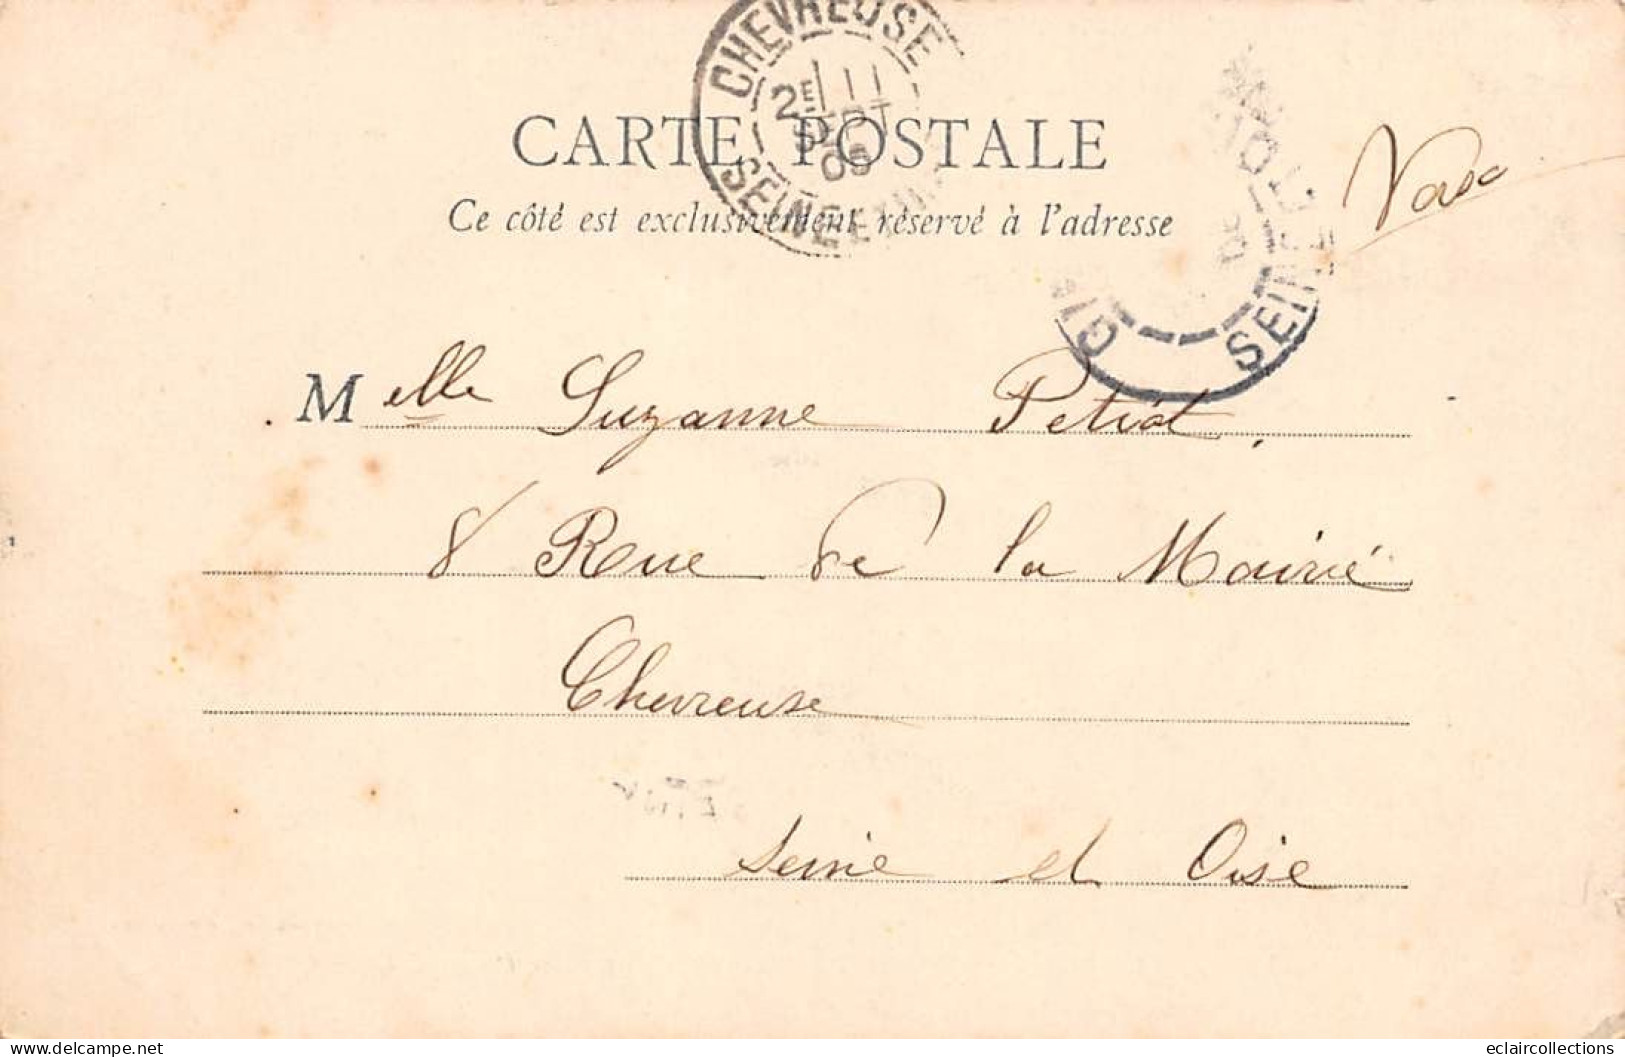 CHEVREUSE
2E 11
SEPT
05
SEINE ET
CARTE POSTALE
Ce côté est exclusivement réservé à l'adresse
GIF
SEINE
Melle Suzanne Petiot.
8 Rue de la Mairie
Chevreuse
Seine et Oise
delcampe.net
eclaircollections